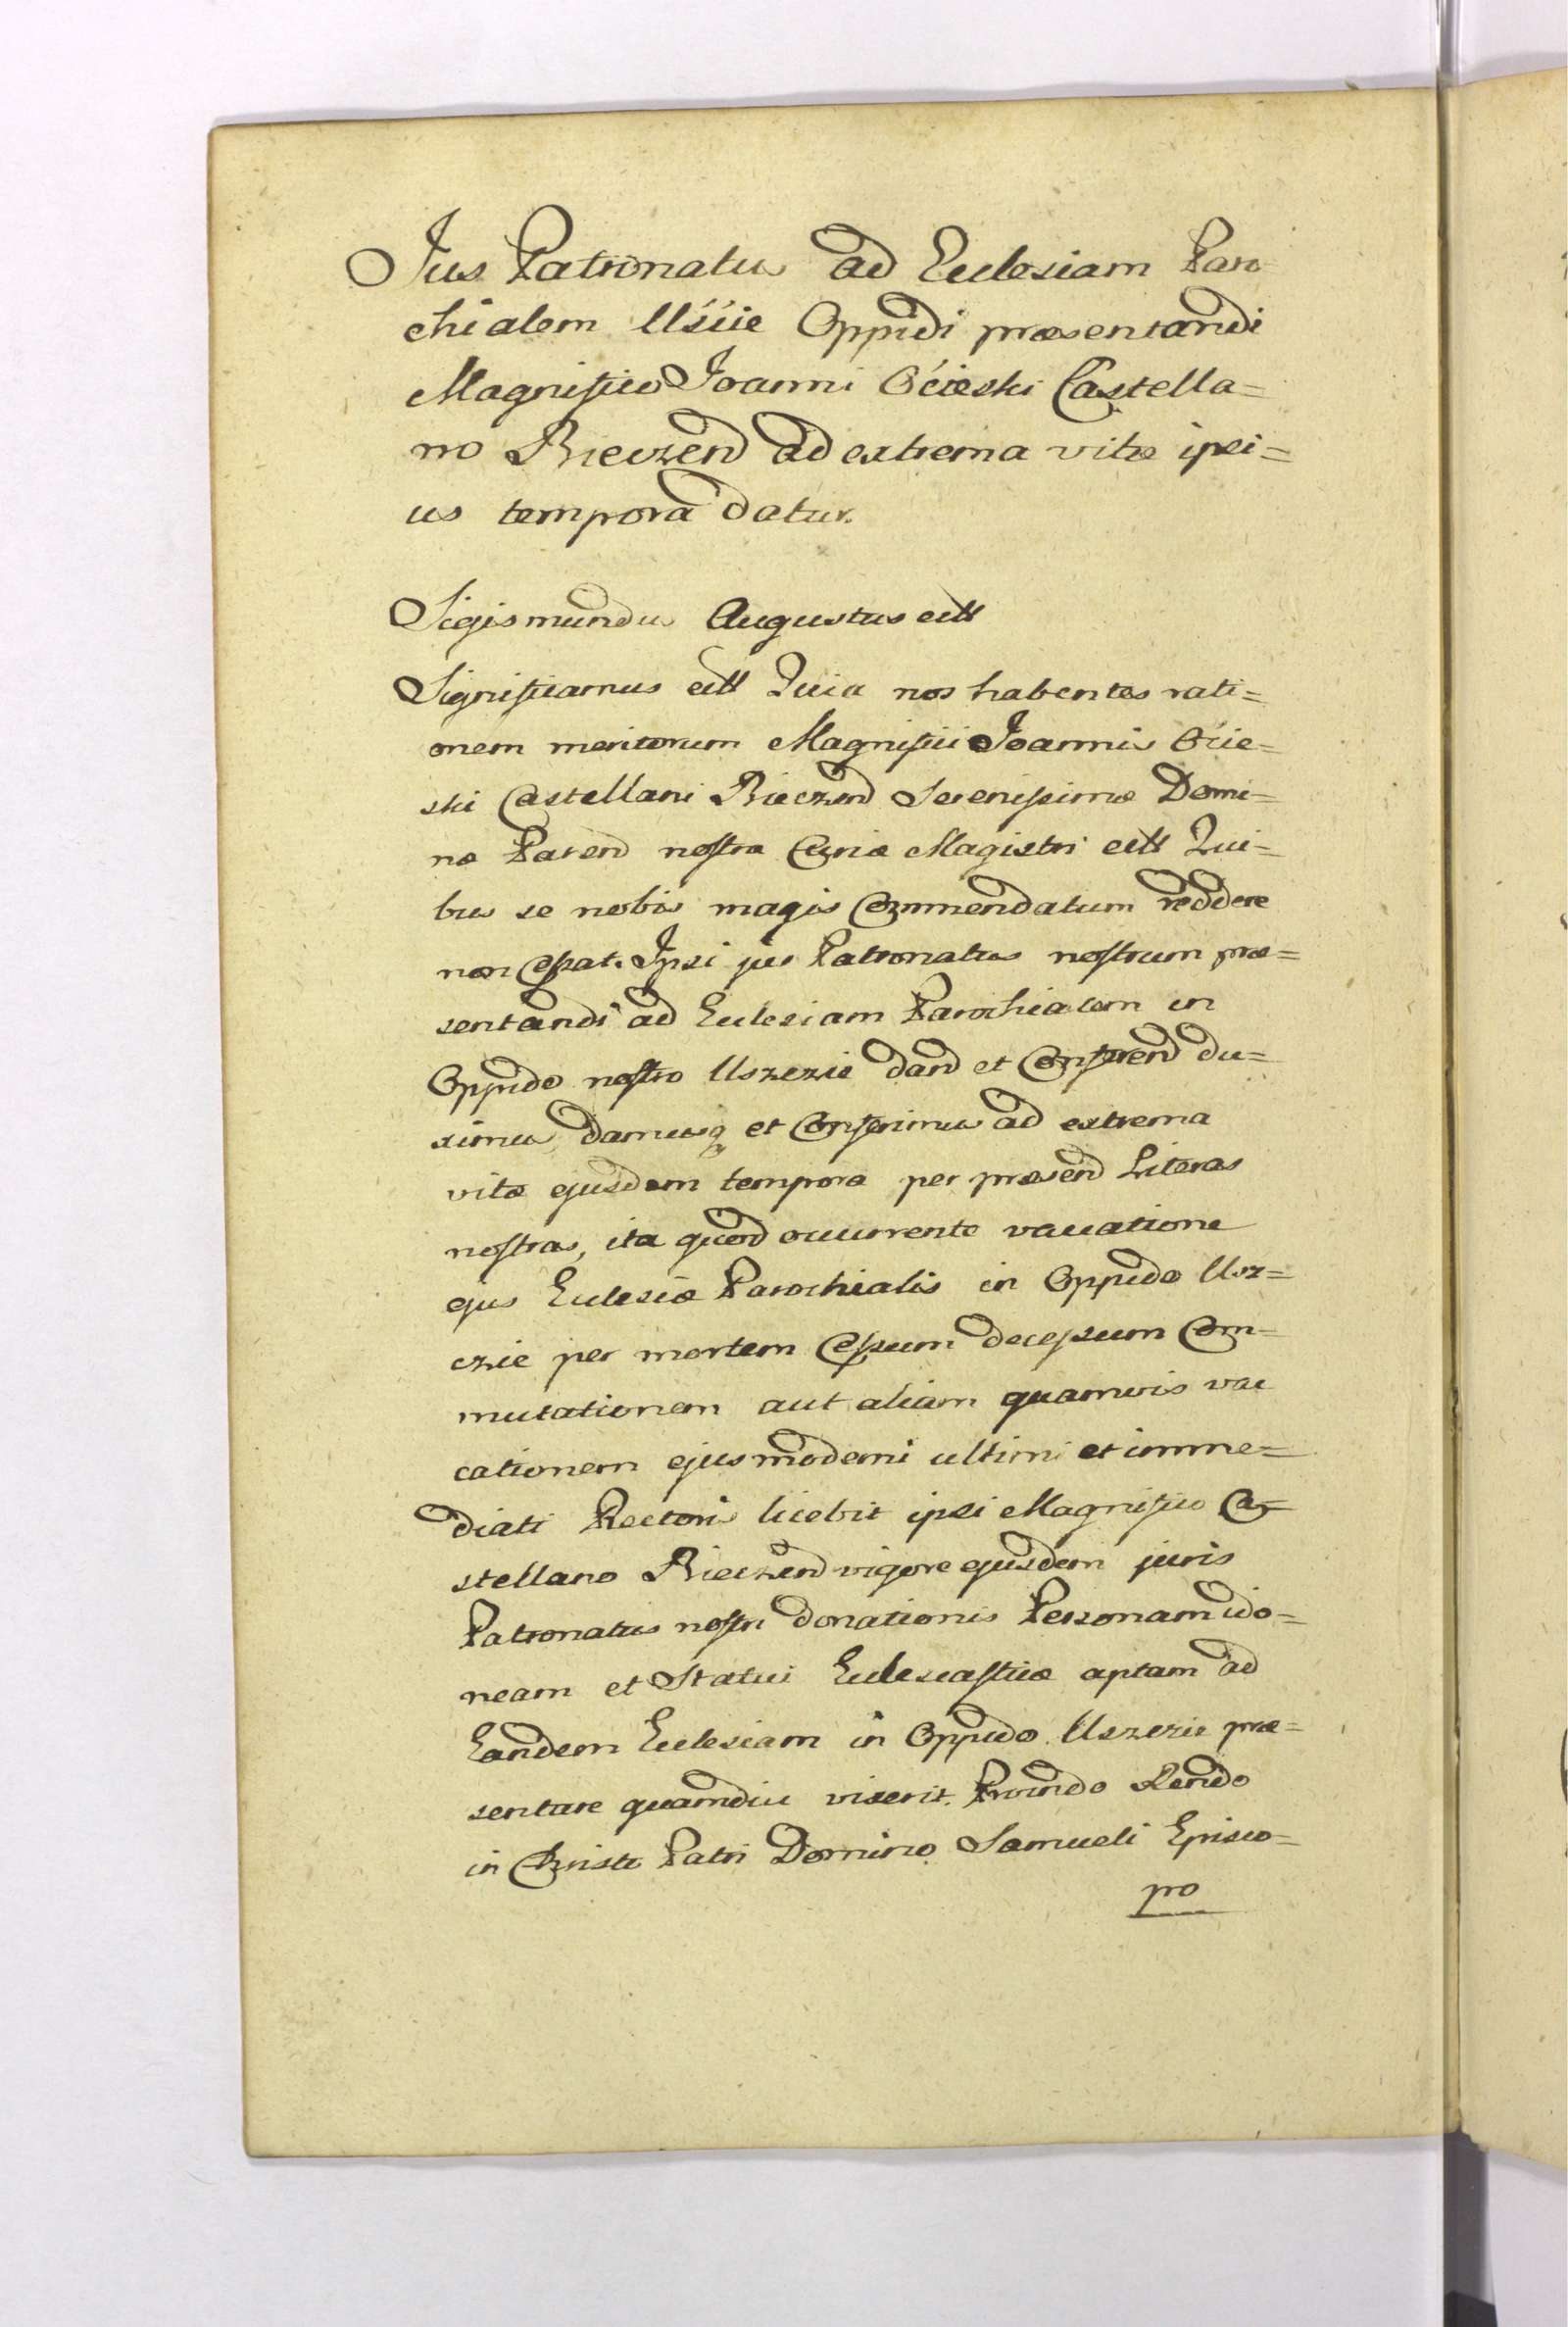 Jus Patronatus ad Ecclesiam Paro
chialem Uście Oppidi præsentandi
Magnifico Joanni Ocieski Castella=
no Bieczend ad extrema vitæ ipsi=
us tempora datur.
Sigismundus Augustus ettt
Significamus ettt Quia nos habentes rati=
onem meritorum Magnifici Joannis Ocie=
ski Castellani Bieczend Serenissimæ Domi=
næ Parend nostra Curiæ Magistri ettt Qui=
bus se nobis magis Commendatum reddere
non cessat. Ipsi jus Patronatus nostrum præ=
sentandi ad Ecclesiam Parochialem in
Oppido nostro Uszczie dand et Conferend du=
ximus, damusq et Conferimus ad extrema
vitæ ejusdem tempora per præsend Literas
nostras, ita quod occurrente vacatione
ejus Ecclesiæ Parochialis in Oppido Usz=
czie per mortem Cessum decessum Com=
mutationem aut aliam quamvis vac
cationem ejusmodemi ultimi et imme=
diati Rectoris licebit ipsi Magnifico Ca=
stellano Bieczend vigore ejusdem juris
Patronatus nostri donationis Personam ido=
neam et Statui Ecclesiasticæ aptam ad
Eandem Ecclesiam in Oppido Uszczie præ=
sentare quamdiu vixerit. Proindo Rendo
in Christo Patri Domino Samueli Episco=
po